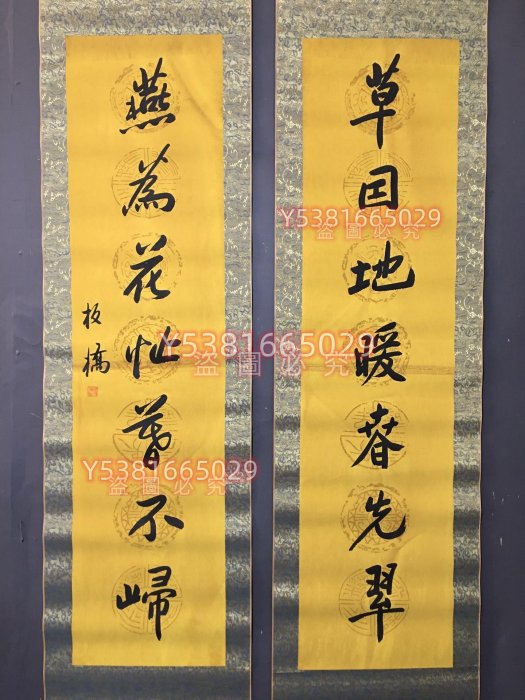 草因地暖春先翠
燕為花忙暮不歸
板橋
Y5381665029
盜圖必究
Y5381665029
盜圖必究
Y5381665029
盜圖必究